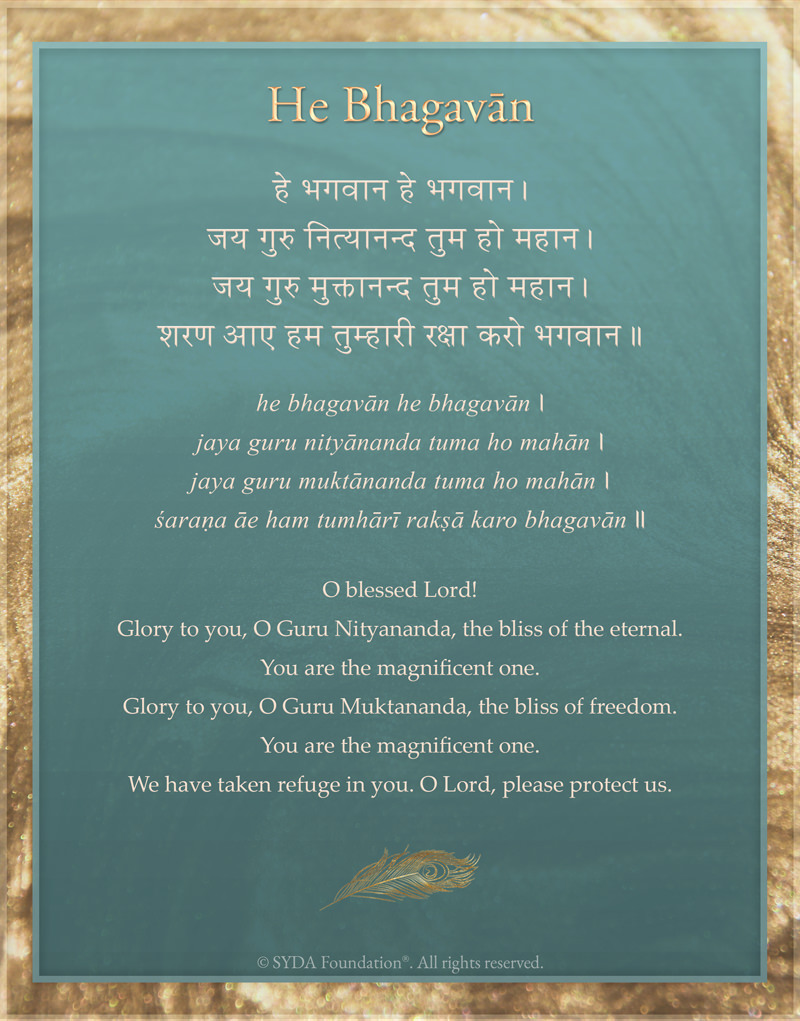 He Bhagavān
हे भगवान हे भगवान।
जय गुरु नित्यानन्द तुम हो महान।
जय गुरु मुक्तानन्द तुम हो महान।
शरण आए हम तुम्हारी रक्षा करो भगवान॥
he bhagavān he bhagavān।
jaya guru nityānanda tuma ho mahān।
jaya guru muktānanda tuma ho mahān।
śaraṇa āe ham tumhārī rakṣā karo bhagavān॥
O blessed Lord!
Glory to you, O Guru Nityananda, the bliss of the eternal.
You are the magnificent one.
Glory to you, O Guru Muktananda, the bliss of freedom.
You are the magnificent one.
We have taken refuge in you. O Lord, please protect us.
© SYDA Foundation®. All rights reserved.